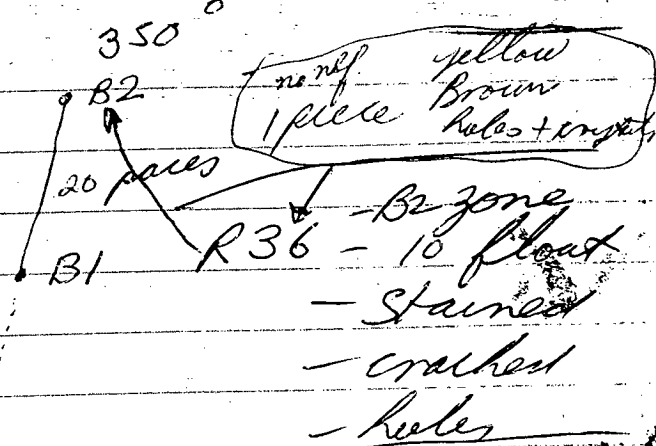 350°
B2
no ref yellow
1 piece Brown
holes + crystals
20 paces
B1
R36 - B2 zone
- 10 float
- Stained
- cracked
- holes